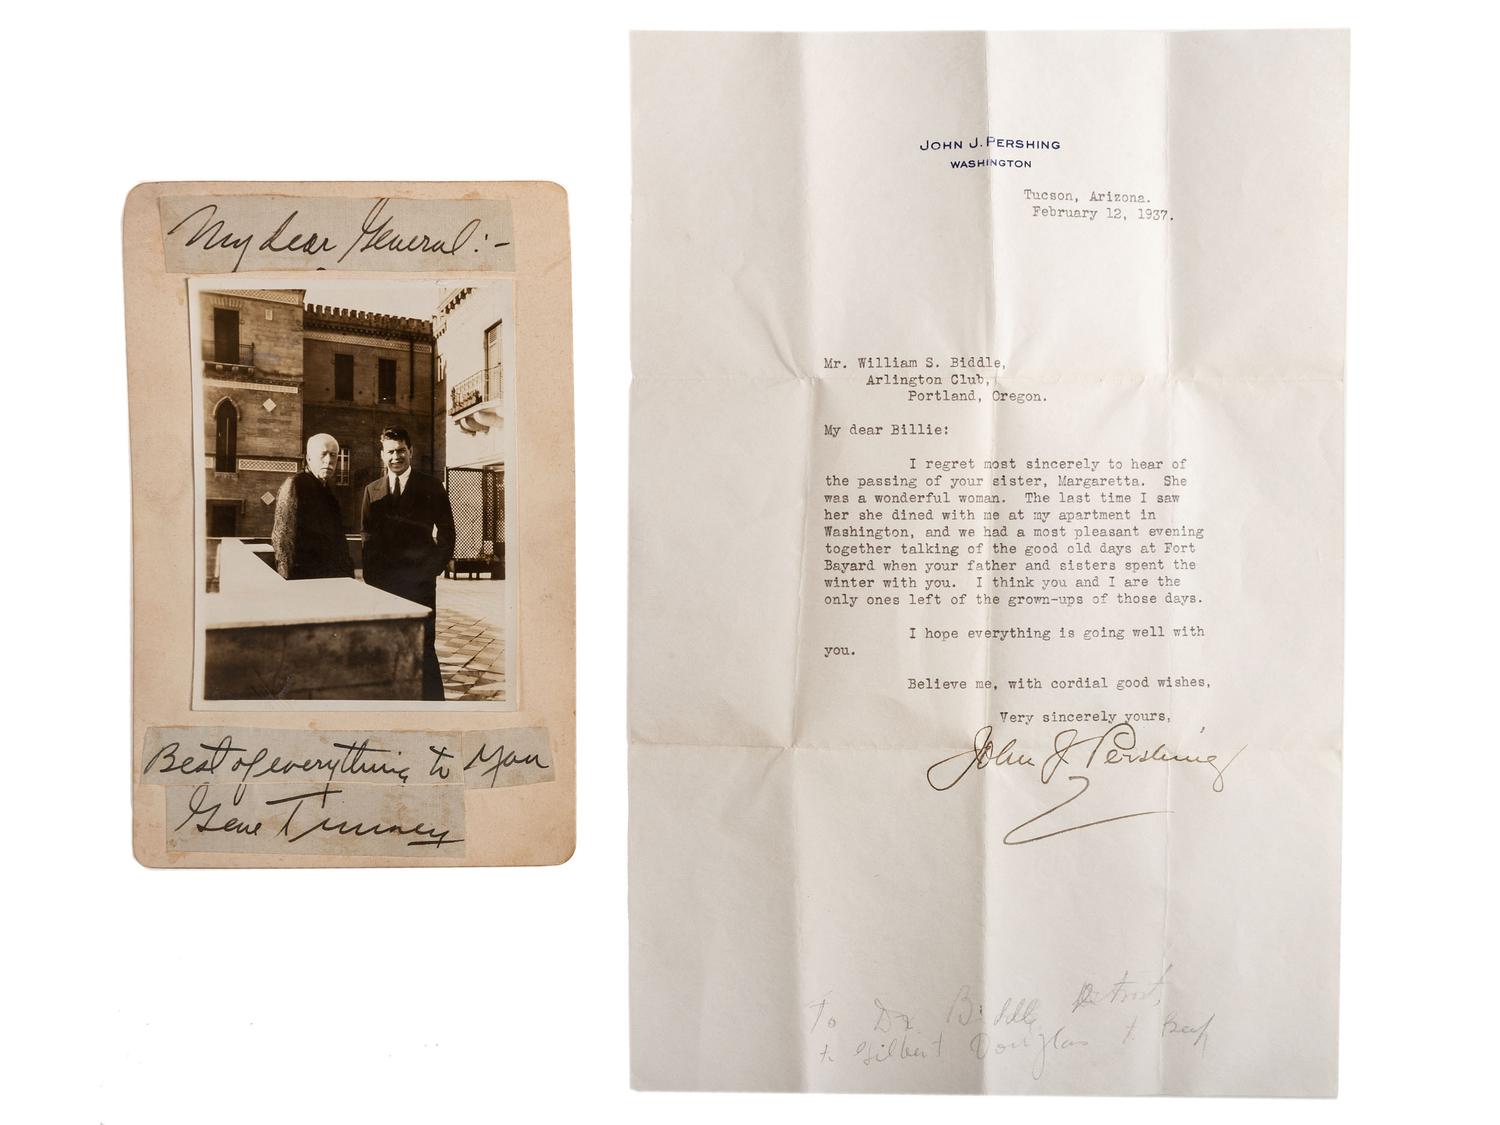 My dear General:-
Best of everything to you
Gene Tunney
JOHN J. PERSHING
WASHINGTON
Tucson, Arizona.
February 12, 1937.
Mr. William S. Biddle,
Arlington Club,
Portland, Oregon.
My dear Billie:
I regret most sincerely to hear of
the passing of your sister, Margaretta. She
was a wonderful woman. The last time I saw
her she dined with me at my apartment in
Washington, and we had a most pleasant evening
together talking of the good old days at Fort
Bayard when your father and sisters spent the
winter with you. I think you and I are the
only ones left of the grown-ups of those days.
I hope everything is going well with
you.
Believe me, with cordial good wishes,
Very sincerely yours,
John J Pershing
To Dr Biddle Detroit,
to Gilbert Douglas to